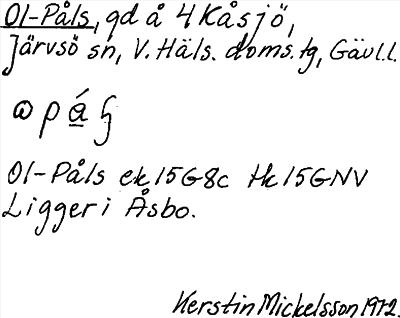 Ol-Påls, gd å 4 Kåsjö,
Järvsö sn, V. Häls. doms. tg, Gävl.l.
Ol-Påls ek 15G8c tk 15GNV
Ligger i Åsbo.
Kerstin Mickelsson 1972.